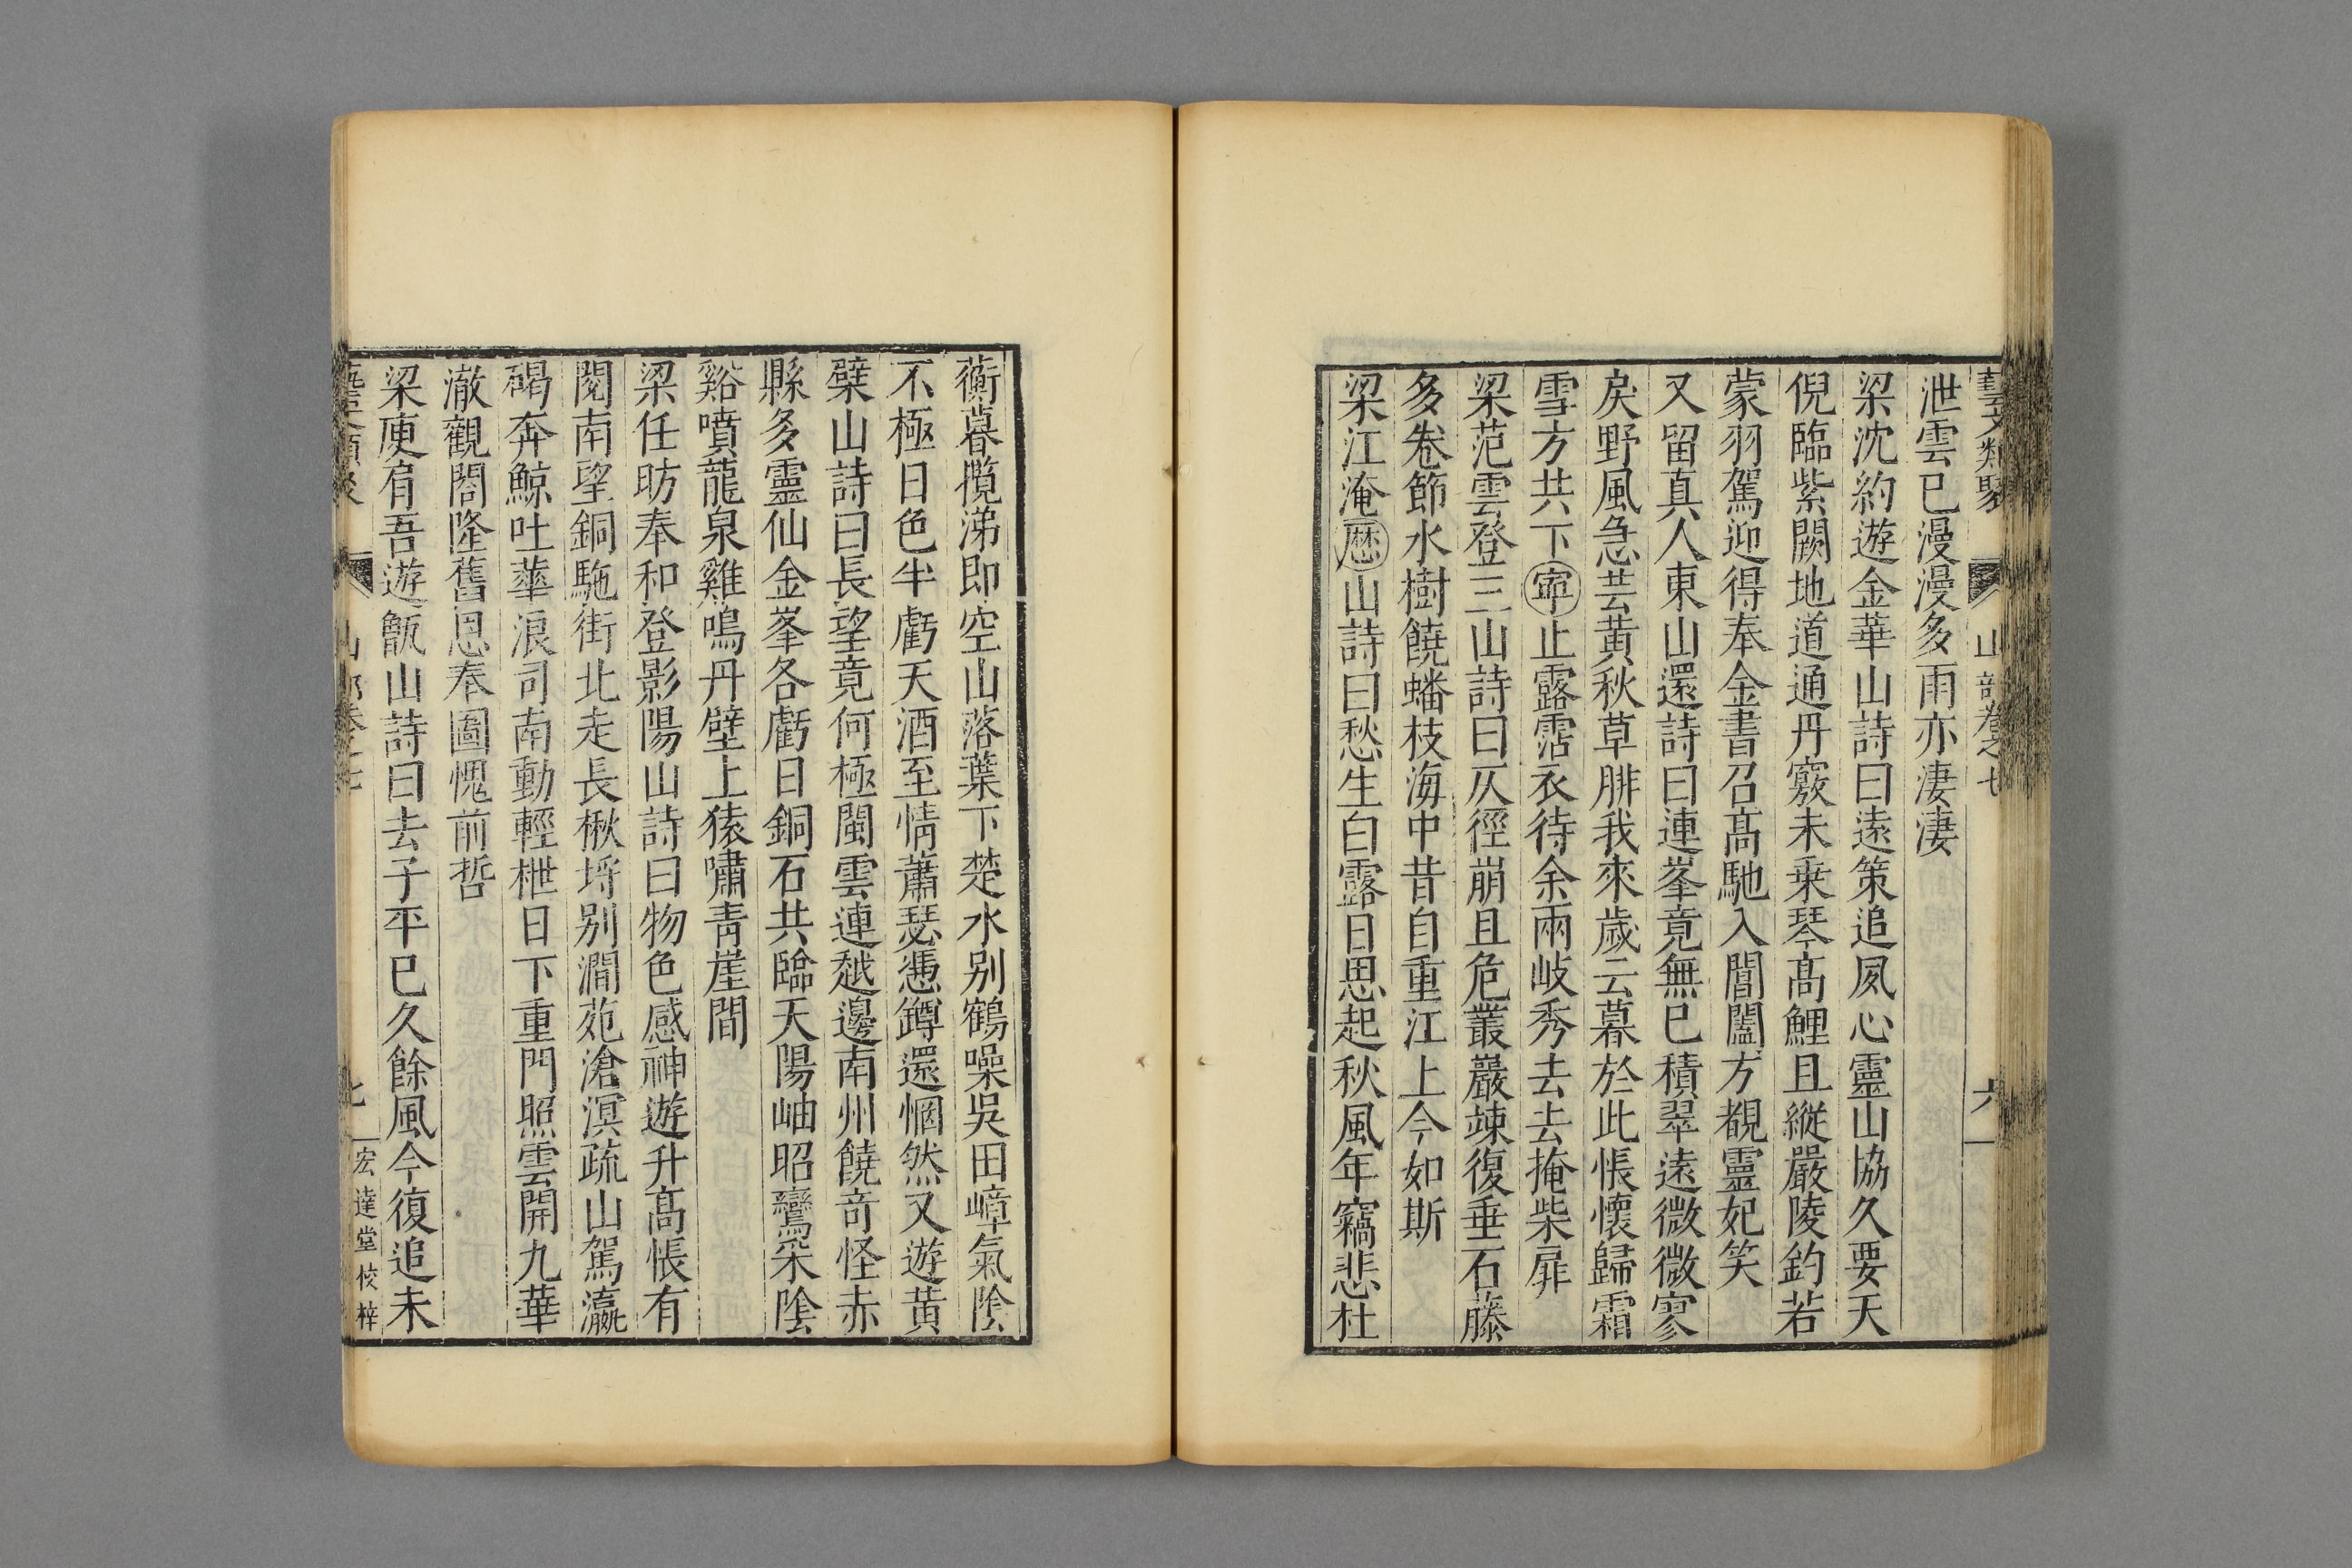 藝文類聚 山部卷之七 六
泄雲已漫漫多雨亦淒淒
梁沈約遊金華山詩曰遠策追夙心靈山協久要天
倪臨紫闕地道通丹竅未乗琴髙鯉且縱嚴陵釣若
蒙羽駕迎得奉金書召髙馳入閶闔方覩靈妃笑
又留真人東山還詩曰連峯竟無已積翠遠微微寥
戾野風急芸黄秋草腓我來歲云暮於此悵懷歸霜
雪方共下寧止露霑衣待余兩岐秀去去掩柴扉
梁范雲登三山詩曰仄徑崩且危叢巖竦復垂石藤
多卷節水樹饒蟠枝海中昔自重江上今如斯
梁江淹歴山詩曰愁生白露日思起秋風年竊悲杜
蘅暮擥涕即空山落葉下楚水别鶴噪吳田嶂氣隂
不極日色半虧天酒至情蕭瑟憑罇還惘然又遊黄
檗山詩曰長望竟何極閩雲連越邊南州饒竒怪赤
縣多靈仙金峯各虧日銅石共臨天陽岫昭鸞采隂
谿噴龍泉雞鳴丹壁上猿嘯青崖間
梁任昉奉和登影陽山詩曰物色感神遊升髙悵有
閱南望銅駞街北走長楸埒别澗苑滄溟疏山駕瀛
碣奔鯨吐華浪司南動輕枻日下重門照雲開九華
澈觀閣隆舊恩奉圖愧前哲
梁庾肩吾遊甑山詩曰去子平已久餘風今復追未
山部卷之七 七 宏達堂校梓